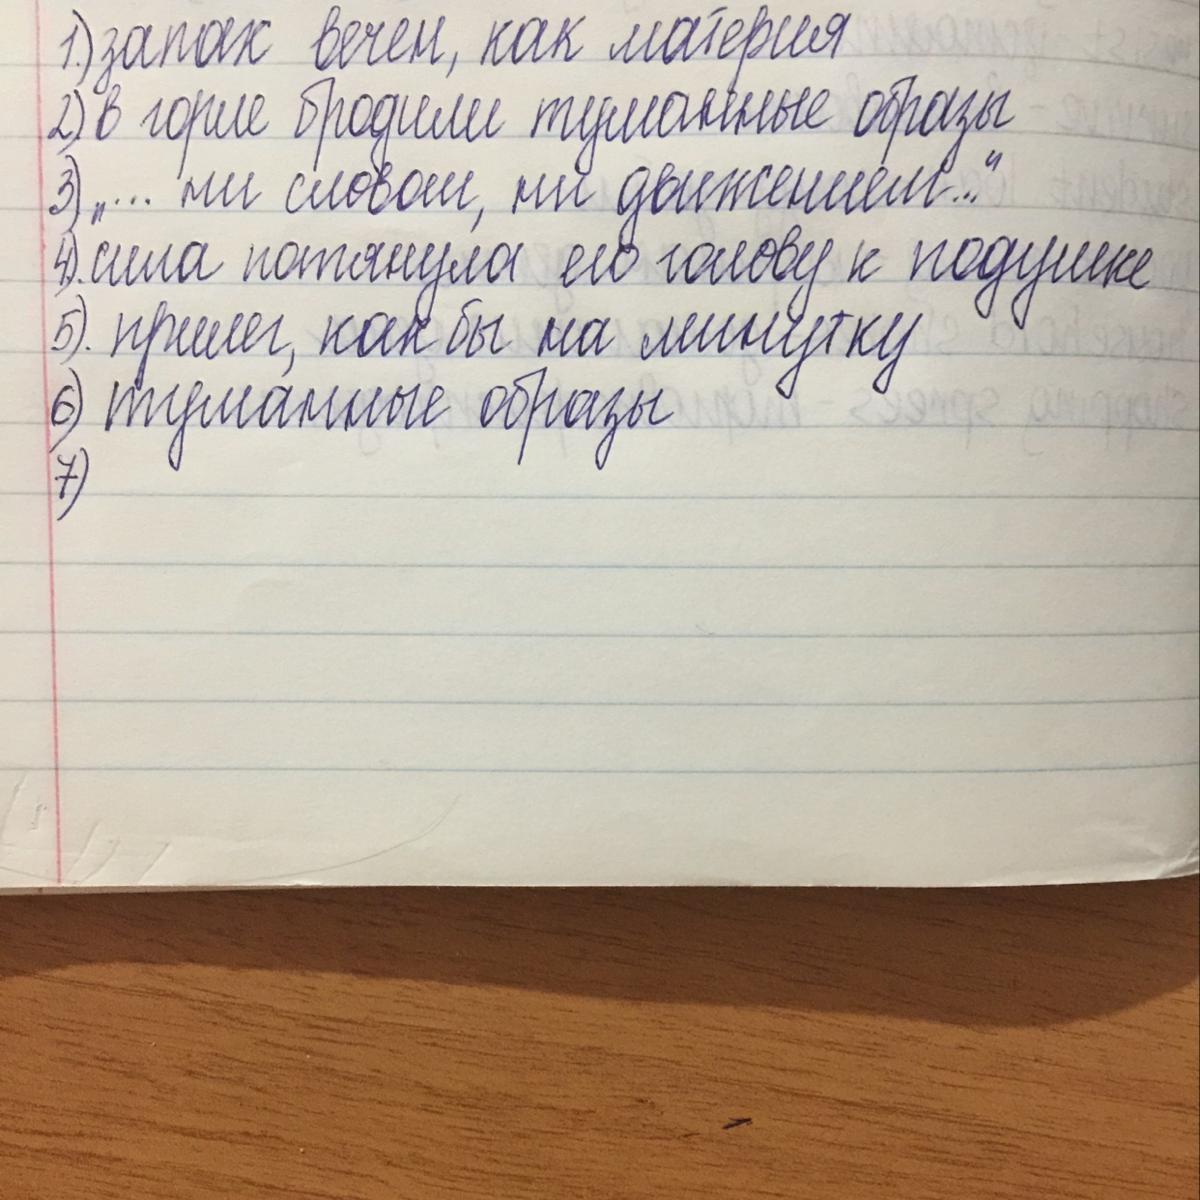 1.) запах вечен, как материя
2.) в горле бродили туманные образы
3.) „... ни словом, ни движением..."
4). сила потянула его голову к подушке
5). прилег, как бы на минутку
6) туманные образы
7)